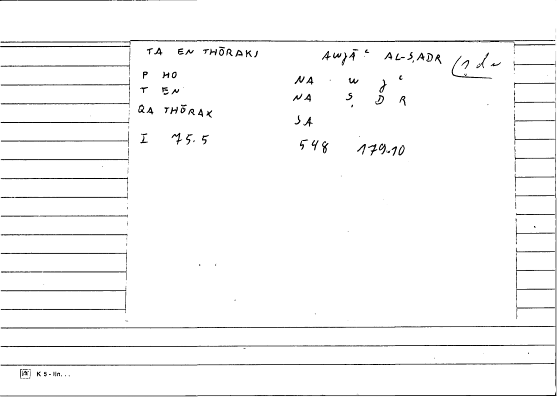 TA EN THŌRAKI AWJĀʿ AL-S,ADR
P HO NA W J ʿ
T EN NA Ṣ D R
QA THŌRAX SA
I 75.5 548 179.10
K 5 - lin...